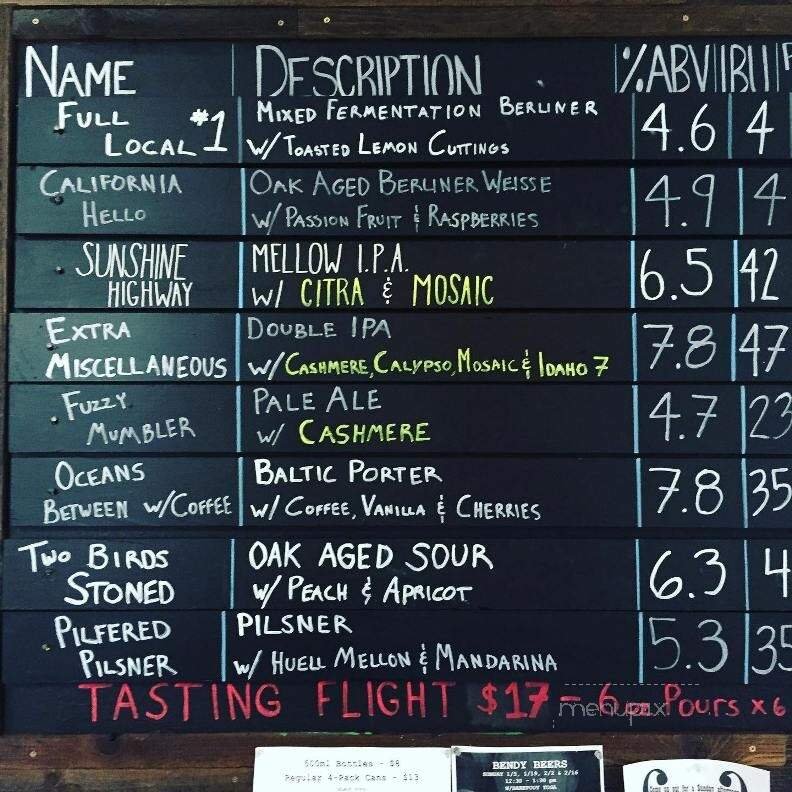 NAME DESCRIPTION %ABV IBU
FULL LOCAL #1 MIXED FERMENTATION BERLINER 4.6 4
W/ TOASTED LEMON CUTTINGS
CALIFORNIA HELLO OAK AGED BERLINER WEISSE 4.9 4
W/ PASSION FRUIT & RASPBERRIES
SUNSHINE HIGHWAY MELLOW I.P.A. 6.5 42
W/ CITRA & MOSAIC
EXTRA MISCELLANEOUS DOUBLE IPA 7.8 47
W/ CASHMERE, CALYPSO, MOSAIC & IDAHO 7
FUZZY MUMBLER PALE ALE 4.7 23
W/ CASHMERE
OCEANS BETWEEN W/COFFEE BALTIC PORTER 7.8 35
W/ COFFEE, VANILLA & CHERRIES
TWO BIRDS STONED OAK AGED SOUR 6.3 4
W/ PEACH & APRICOT
PILFERED PILSNER PILSNER 5.3 35
W/ HUELL MELLON & MANDARINA
TASTING FLIGHT $17 = 6 POURS x 6
menupix
500ml Bottles - $8
Regular 4-Pack Cans - $13
BENDY BEERS
SUNDAY 1/5, 1/19, 2/2 & 2/16
12:30 - 1:30 pm
W/BAREFOOT YOGA
Come on out for a Sunday afternoon